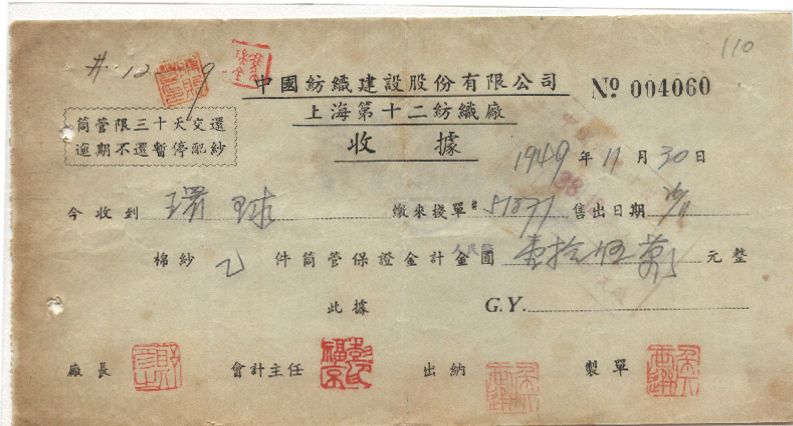 110
# 12
中國紡織建設股份有限公司
No 004060
上海第十二紡織廠
筒管限三十天交還
逾期不還暫停配紗
收據
1949年11月30日
今收到 環球 繳來棧單# 51877 售出日期 26/11
棉紗 2 件筒管保證金計金圓 人民幣 壹拾伍萬 元整
此據 G.Y.
廠長 會計主任 彭福京 出納 製單